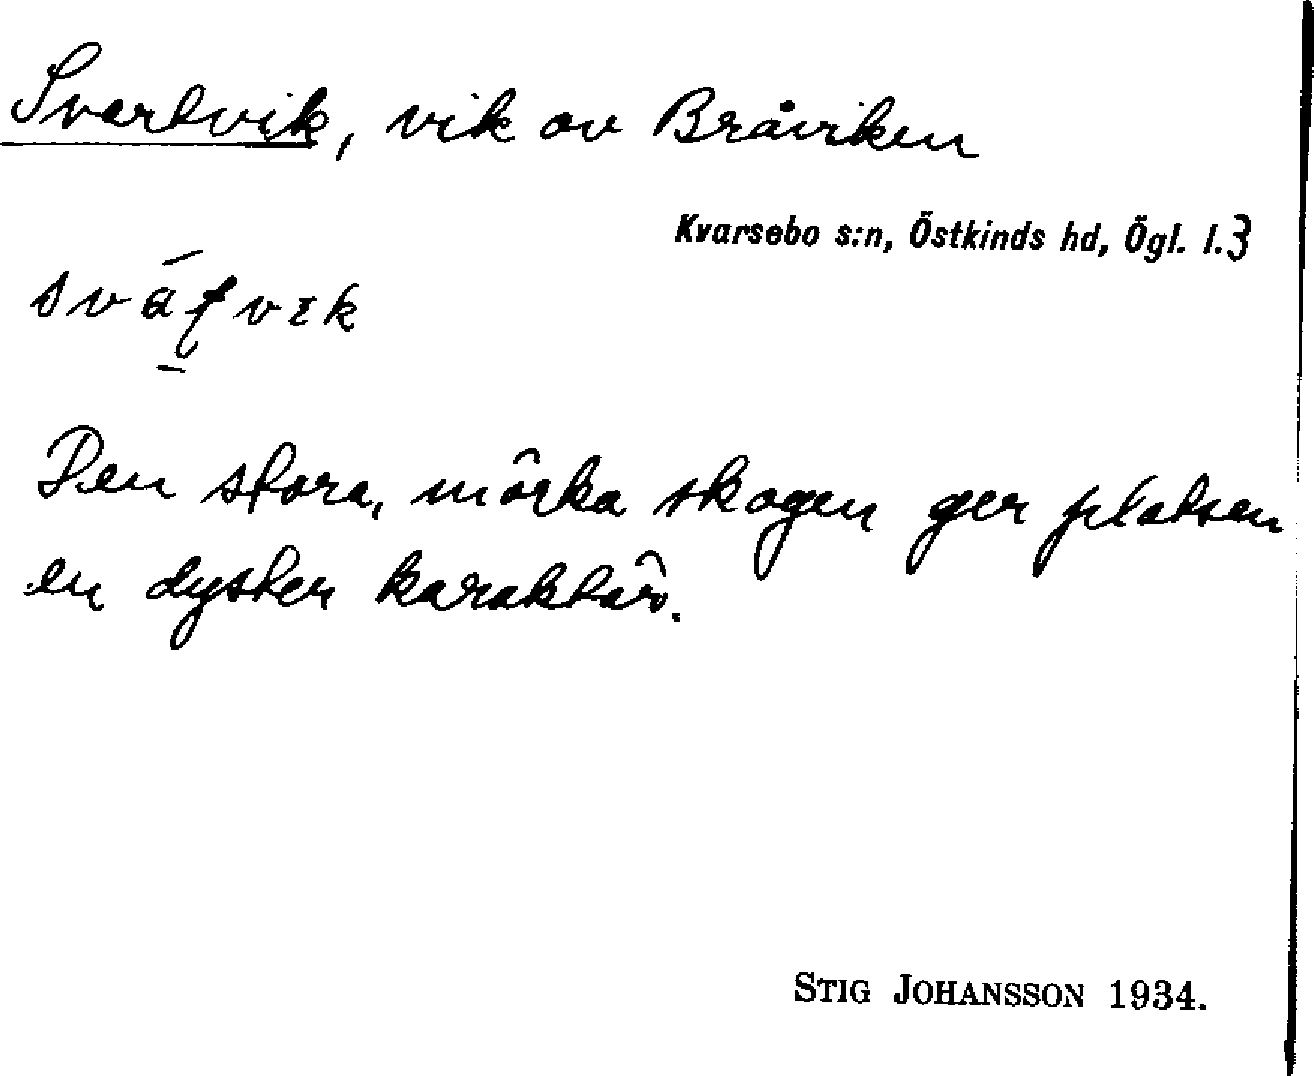 Svartvik, vik av Bråviken
Kvarsebo s:n, Östkinds hd, Ögl. l. 3
Den stora, mörka skogen ger platsen
en dyster karaktär.
STIG JOHANSSON 1934.